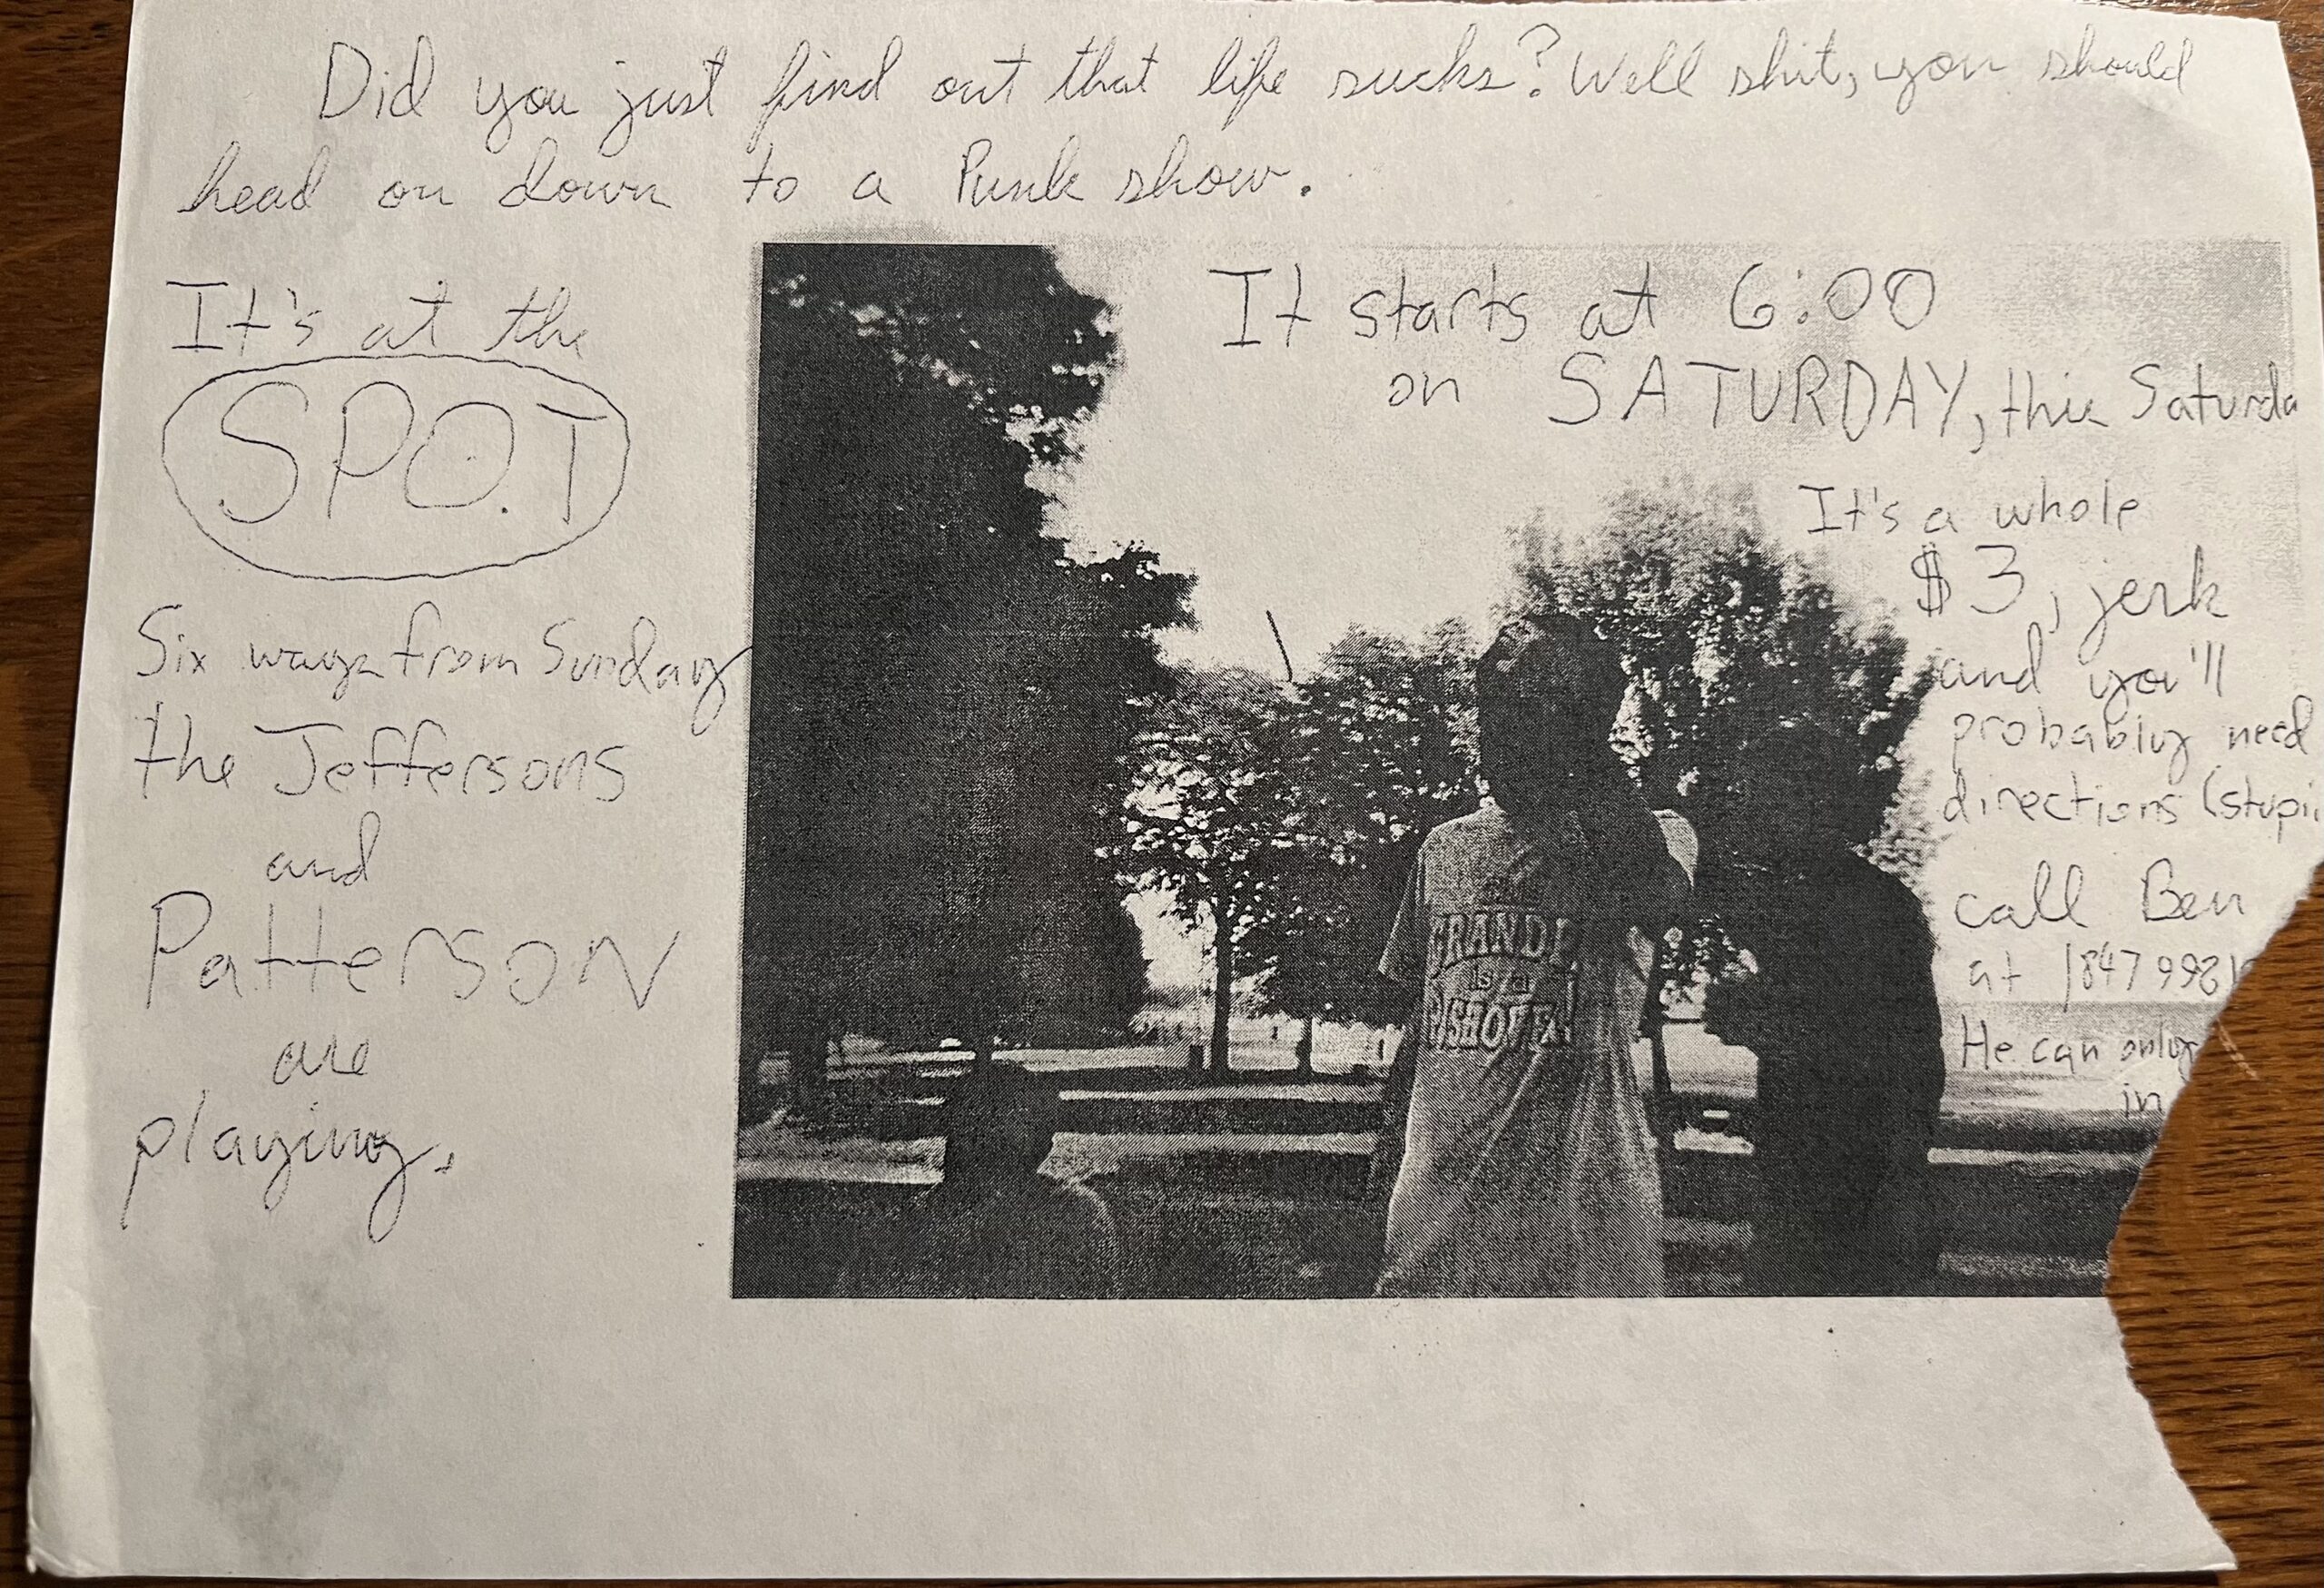 Did you just find out that life sucks? Well shit, you should
head on down to a Punk show.
It's at the
SPO.T
Six ways from Sunday
the Jeffersons
and
Patterson
are
playing.
It starts at 6:00
on SATURDAY, this Saturda
It's a whole
$3, jerk
and you'll
probably need
directions (stupi
call Ben
at 1847998
He can only
in
GRANDE
is a